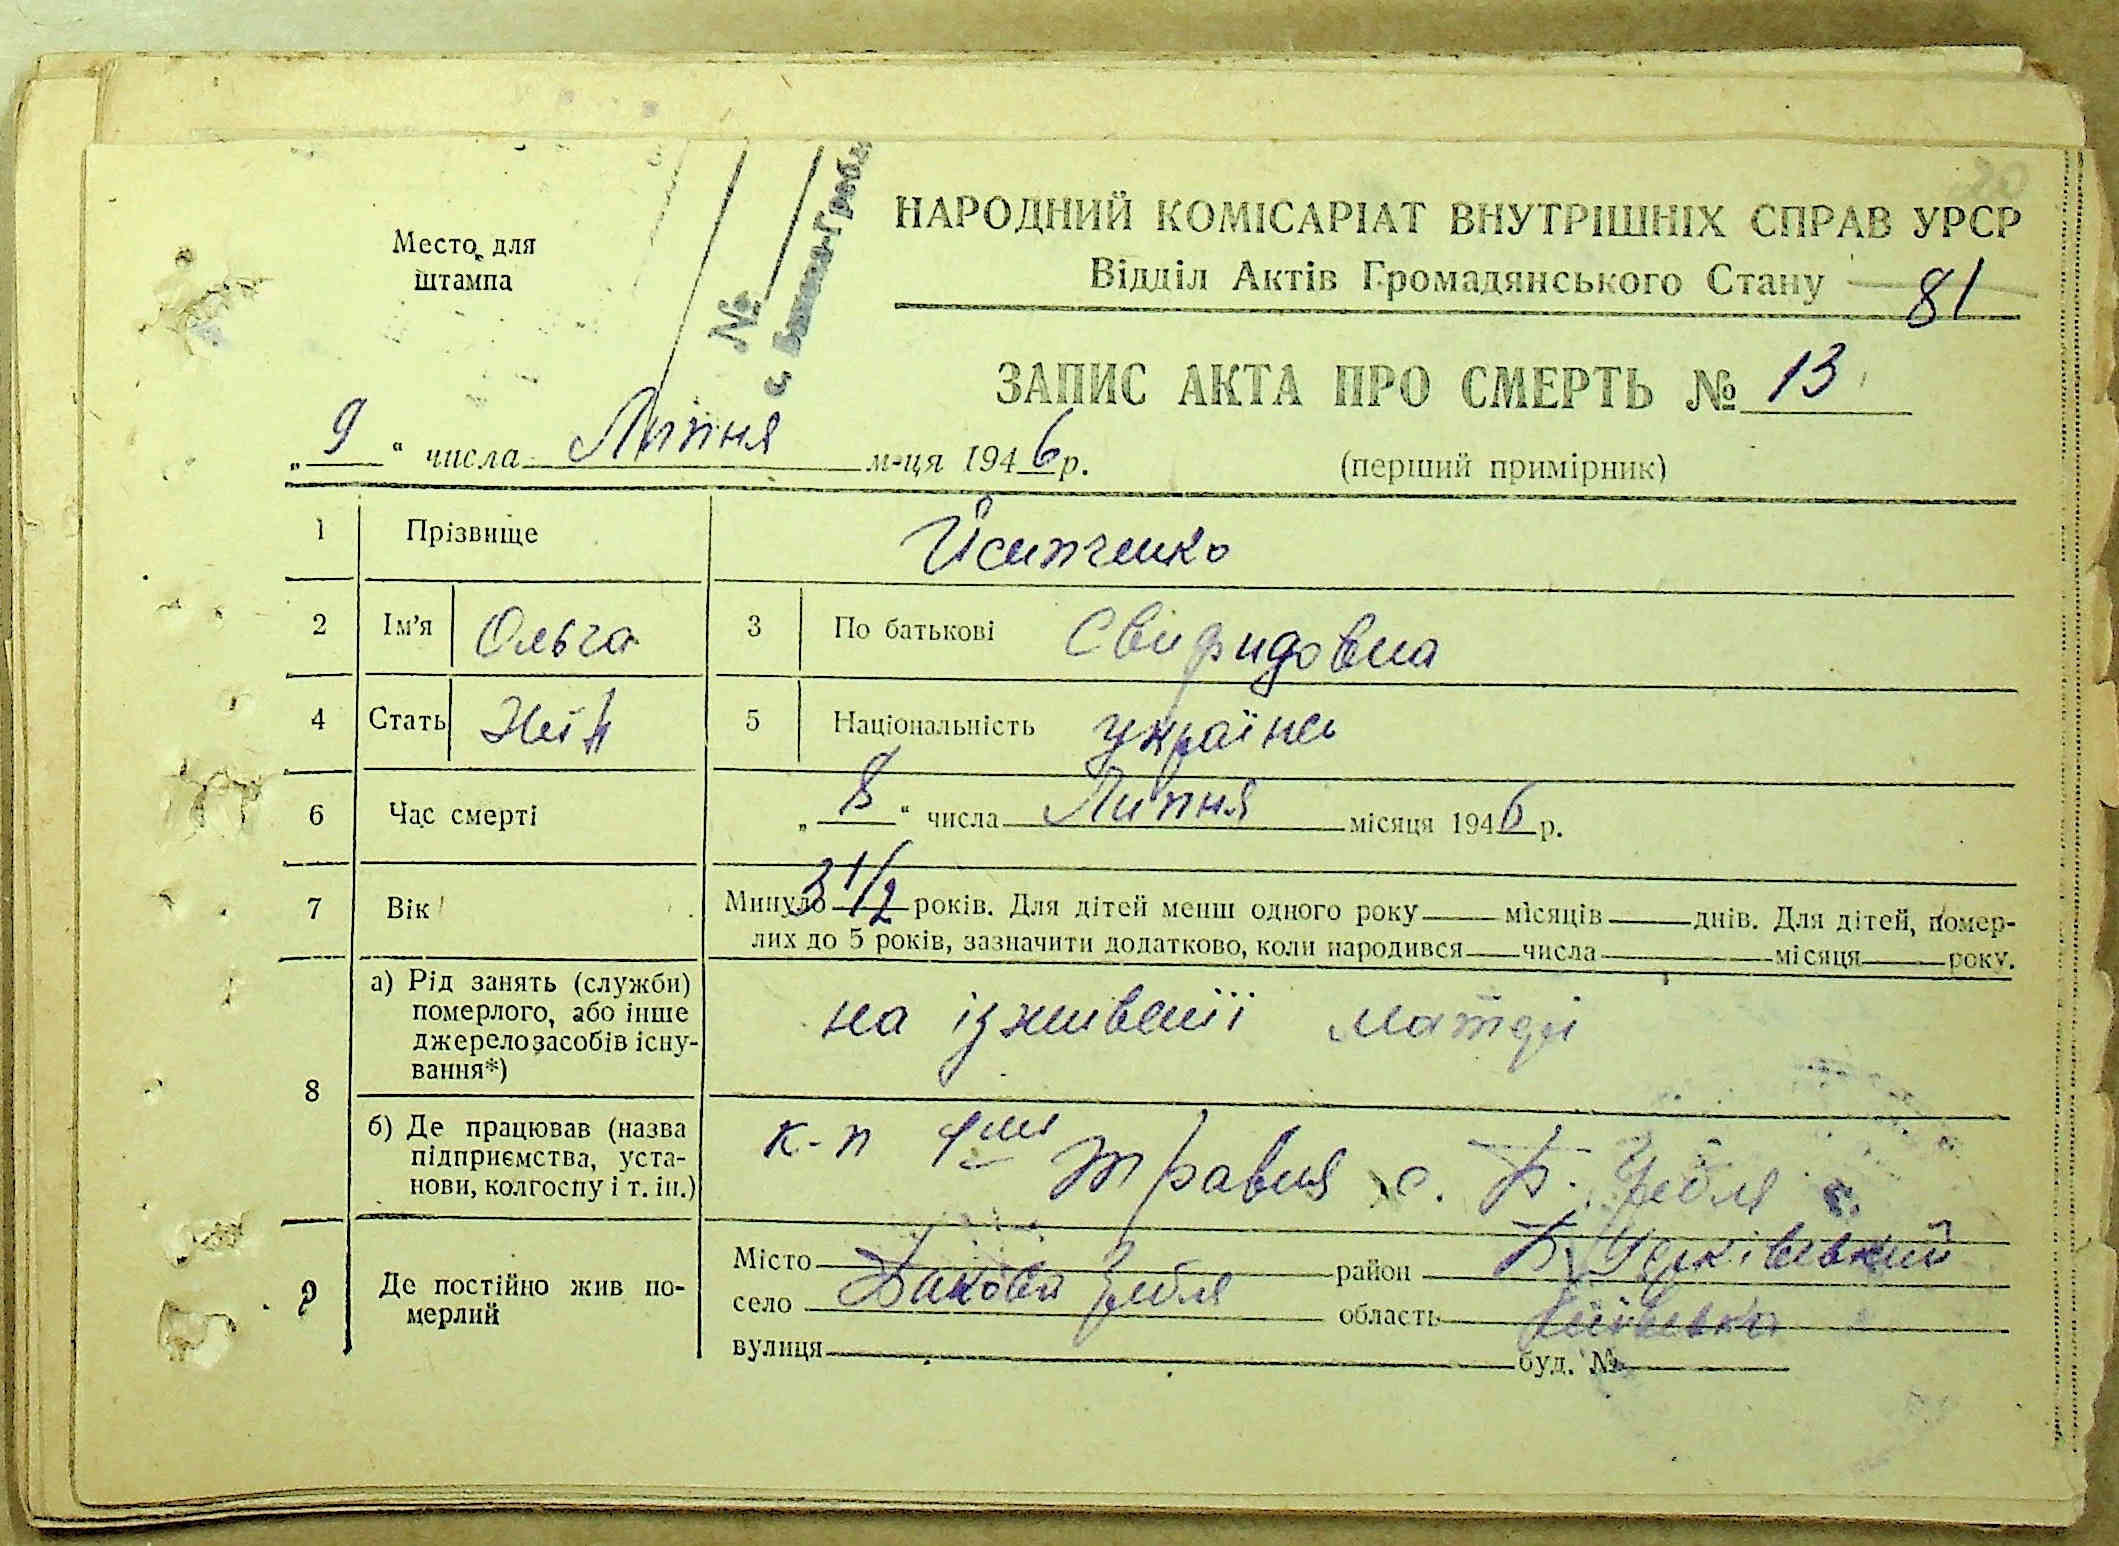 20
НАРОДНИЙ КОМІСАРІАТ ВНУТРІШНІХ СПРАВ УРСР
Место для
штампа
№
с. Бакова-Гребл
Відділ Актів Громадянського Стану
81
ЗАПИС АКТА ПРО СМЕРТЬ № 13
„ 9 “ числа Липня м-ця 1946 р.
(перший примірник)
1 Прізвище Йсипченко
2 Ім'я Ольга 3 По батькові Свиридовна
4 Стать Жін 5 Національність українь
6 Час смерті „ 8 “ числа Липня місяця 1946 р.
7 Вік Минуло 3 1/2 років. Для дітей менш одного року місяців днів. Для дітей, помер-
лих до 5 років, зазначити додатково, коли народився числа місяця року.
8 а) Рід занять (служби)
померлого, або інше
джерело засобів існу-
вання*)
на іживенії матері
б) Де працював (назва
підприємства, уста-
нови, колгоспу і т. ін.)
к-п 1ше Травня с. Б. Гребля
9 Де постійно жив по-
мерлий
Місто район Б Церківський
село Бакова Гребля область Київська
вулиця буд. №